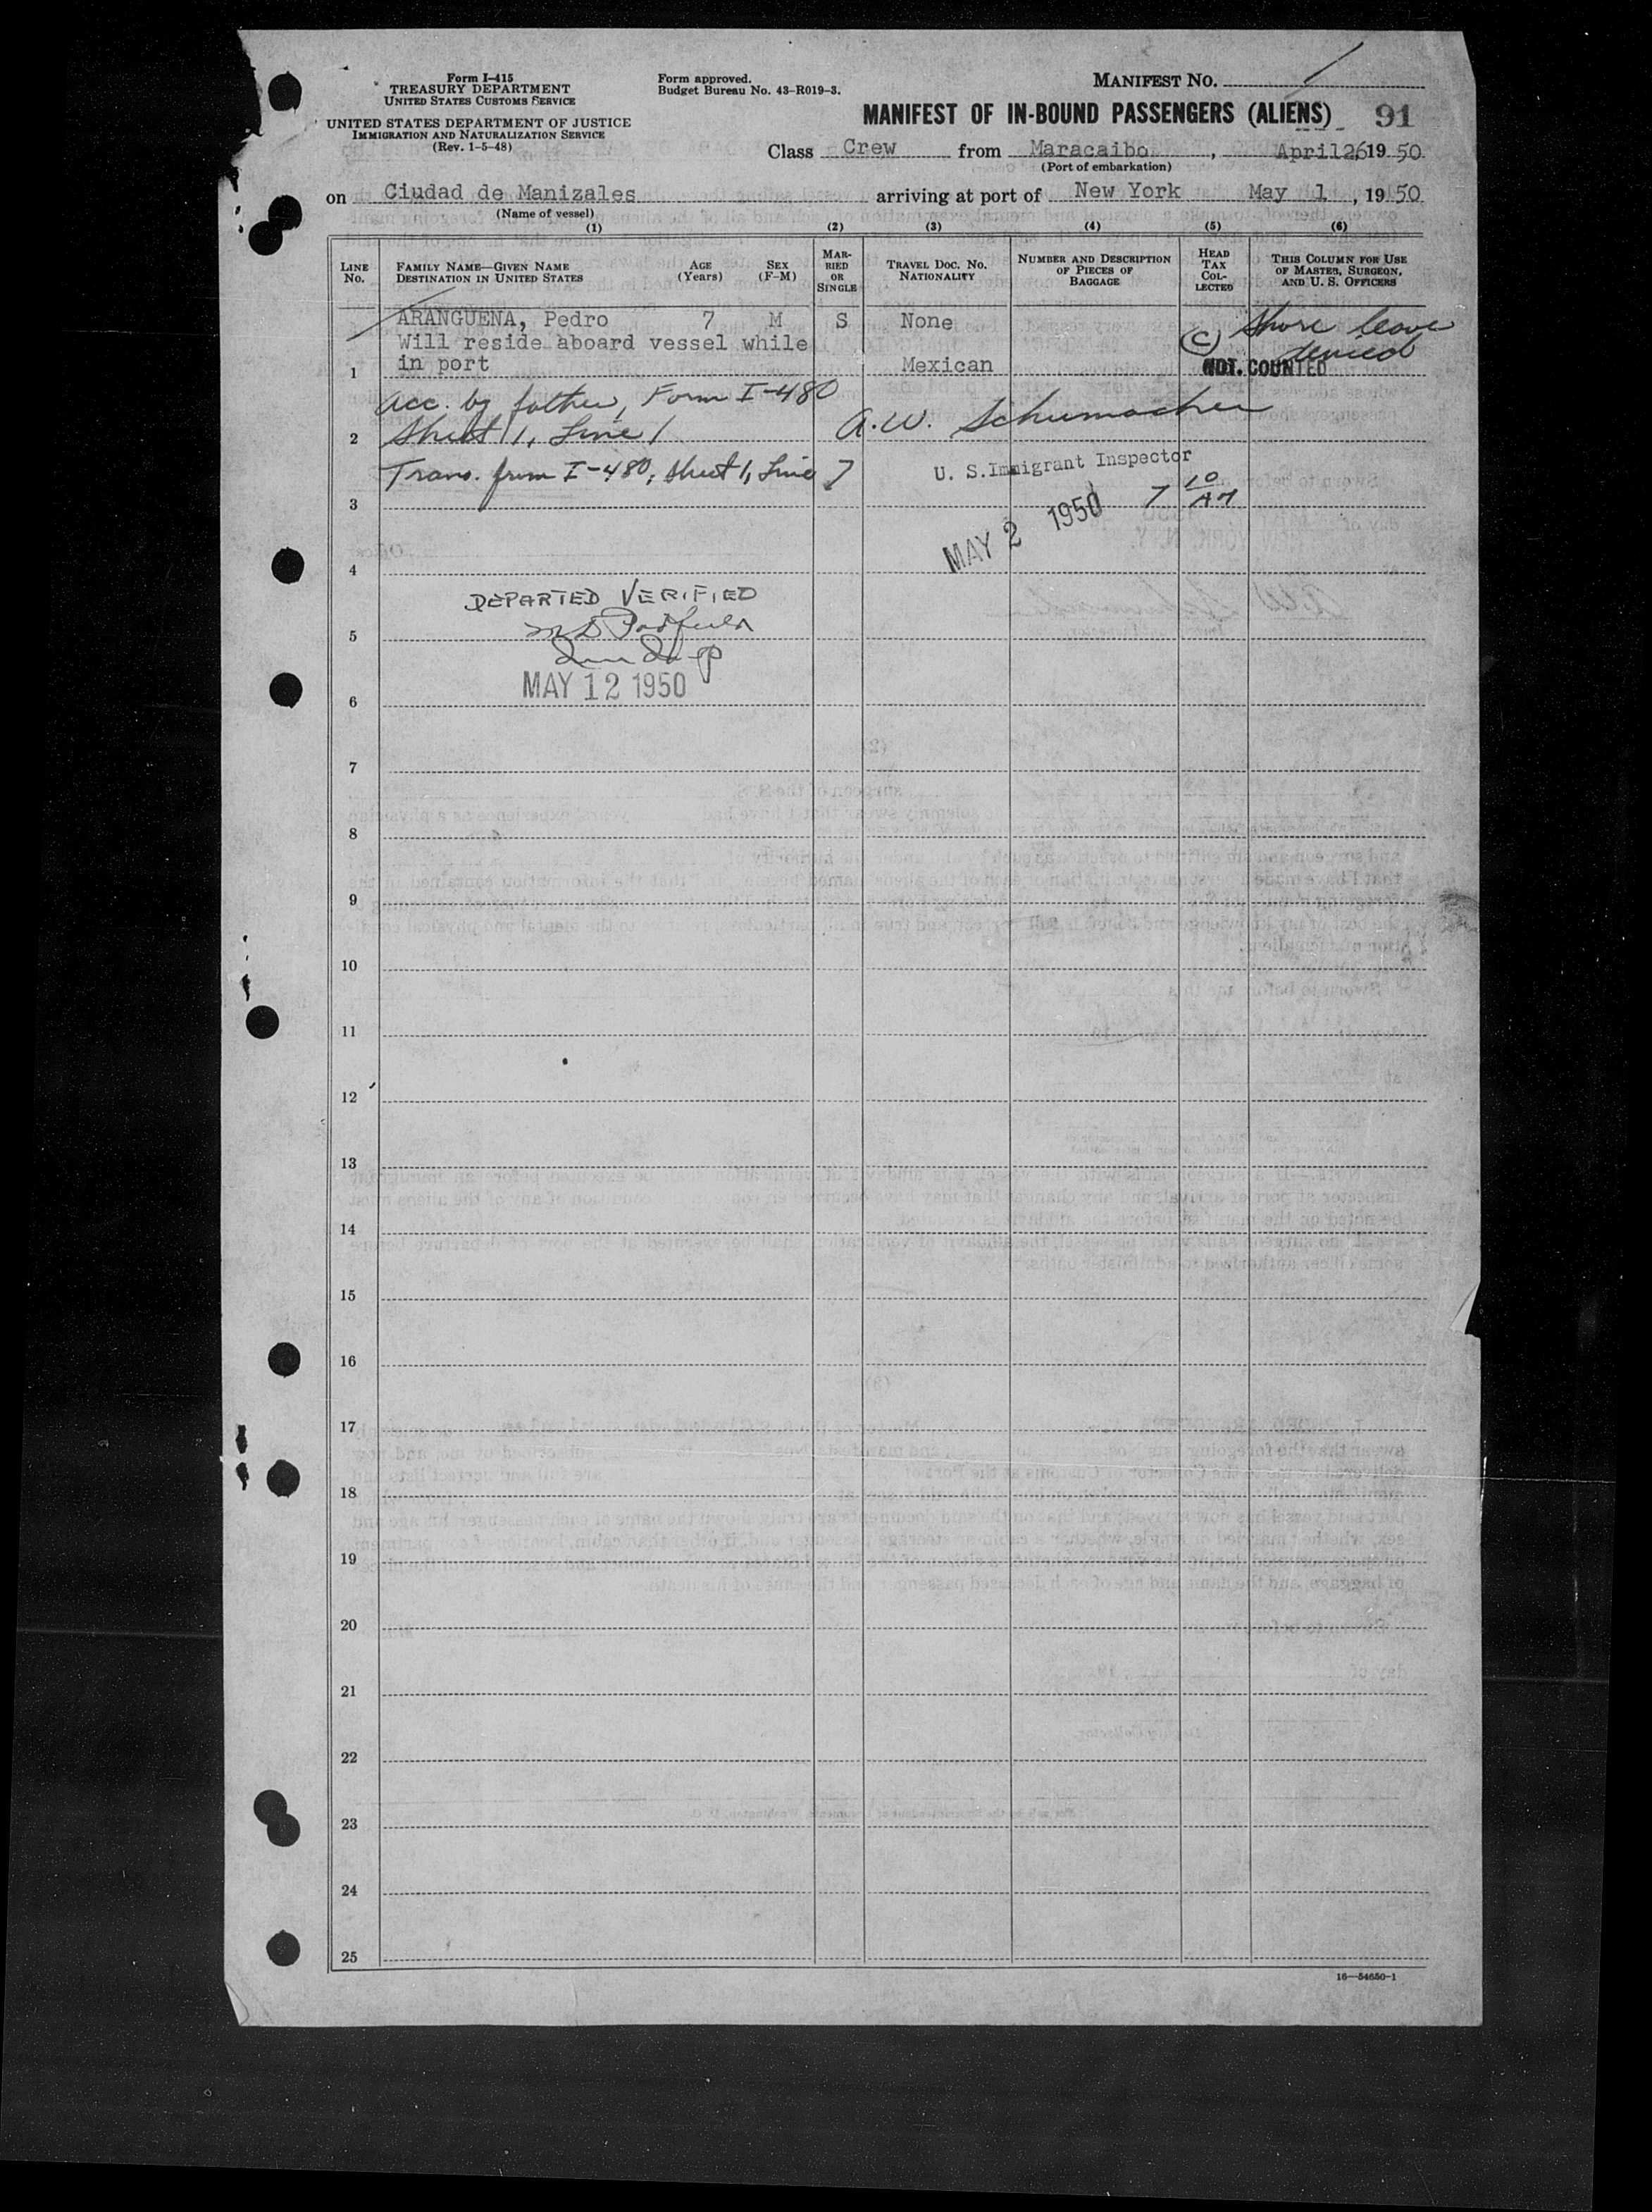 Form I-415
TREASURY DEPARTMENT
UNITED STATES CUSTOMS SERVICE
UNITED STATES DEPARTMENT OF JUSTICE
IMMIGRATION AND NATURALIZATION SERVICE
(Rev. 1-5-48)
Form approved.
Budget Bureau No. 43-R019-3.
MANIFEST NO. /
MANIFEST OF IN-BOUND PASSENGERS (ALIENS) 91
Class Crew from Maracaibo, April 26, 1950
(Port of embarkation)
on Ciudad de Manizales arriving at port of New York May 1, 1950
(Name of vessel)
(1) (2) (3) (4) (5) (6)
LINE NO.
FAMILY NAME—GIVEN NAME
DESTINATION IN UNITED STATES
AGE (Years)
SEX (F-M)
MARRIED OR SINGLE
TRAVEL DOC. NO.
NATIONALITY
NUMBER AND DESCRIPTION OF PIECES OF BAGGAGE
HEAD TAX COLLECTED
THIS COLUMN FOR USE OF MASTER, SURGEON, AND U. S. OFFICERS
ARANGUENA, Pedro 7 M S None
Shore leave
Will reside aboard vessel while
(C) denied
1 in port Mexican NOT COUNTED
acc. by father, Form I-480
2 Sheet 1, Line 1 A.W. Schumacher
Trans. from I-480, sheet 1, Line 7
U. S. Immigrant Inspector
3 7 10 AM
MAY 2 1950
4
DEPARTED VERIFIED
5
MAY 12 1950
6
7
8
9
10
11
12
13
14
15
16
17
18
19
20
21
22
23
24
25
16—54650-1